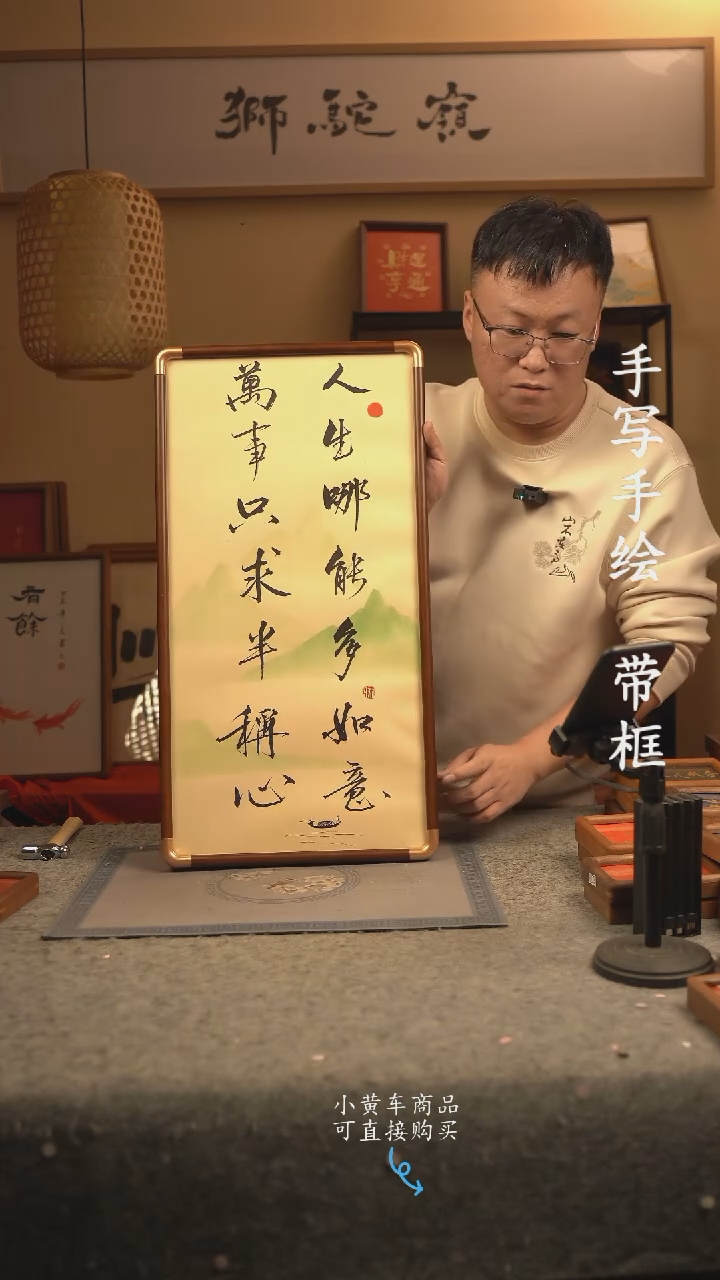 獅駝嶺
人生哪能多如意
萬事只求半稱心
有餘
手写手绘
带框
小黄车商品
可直接购买